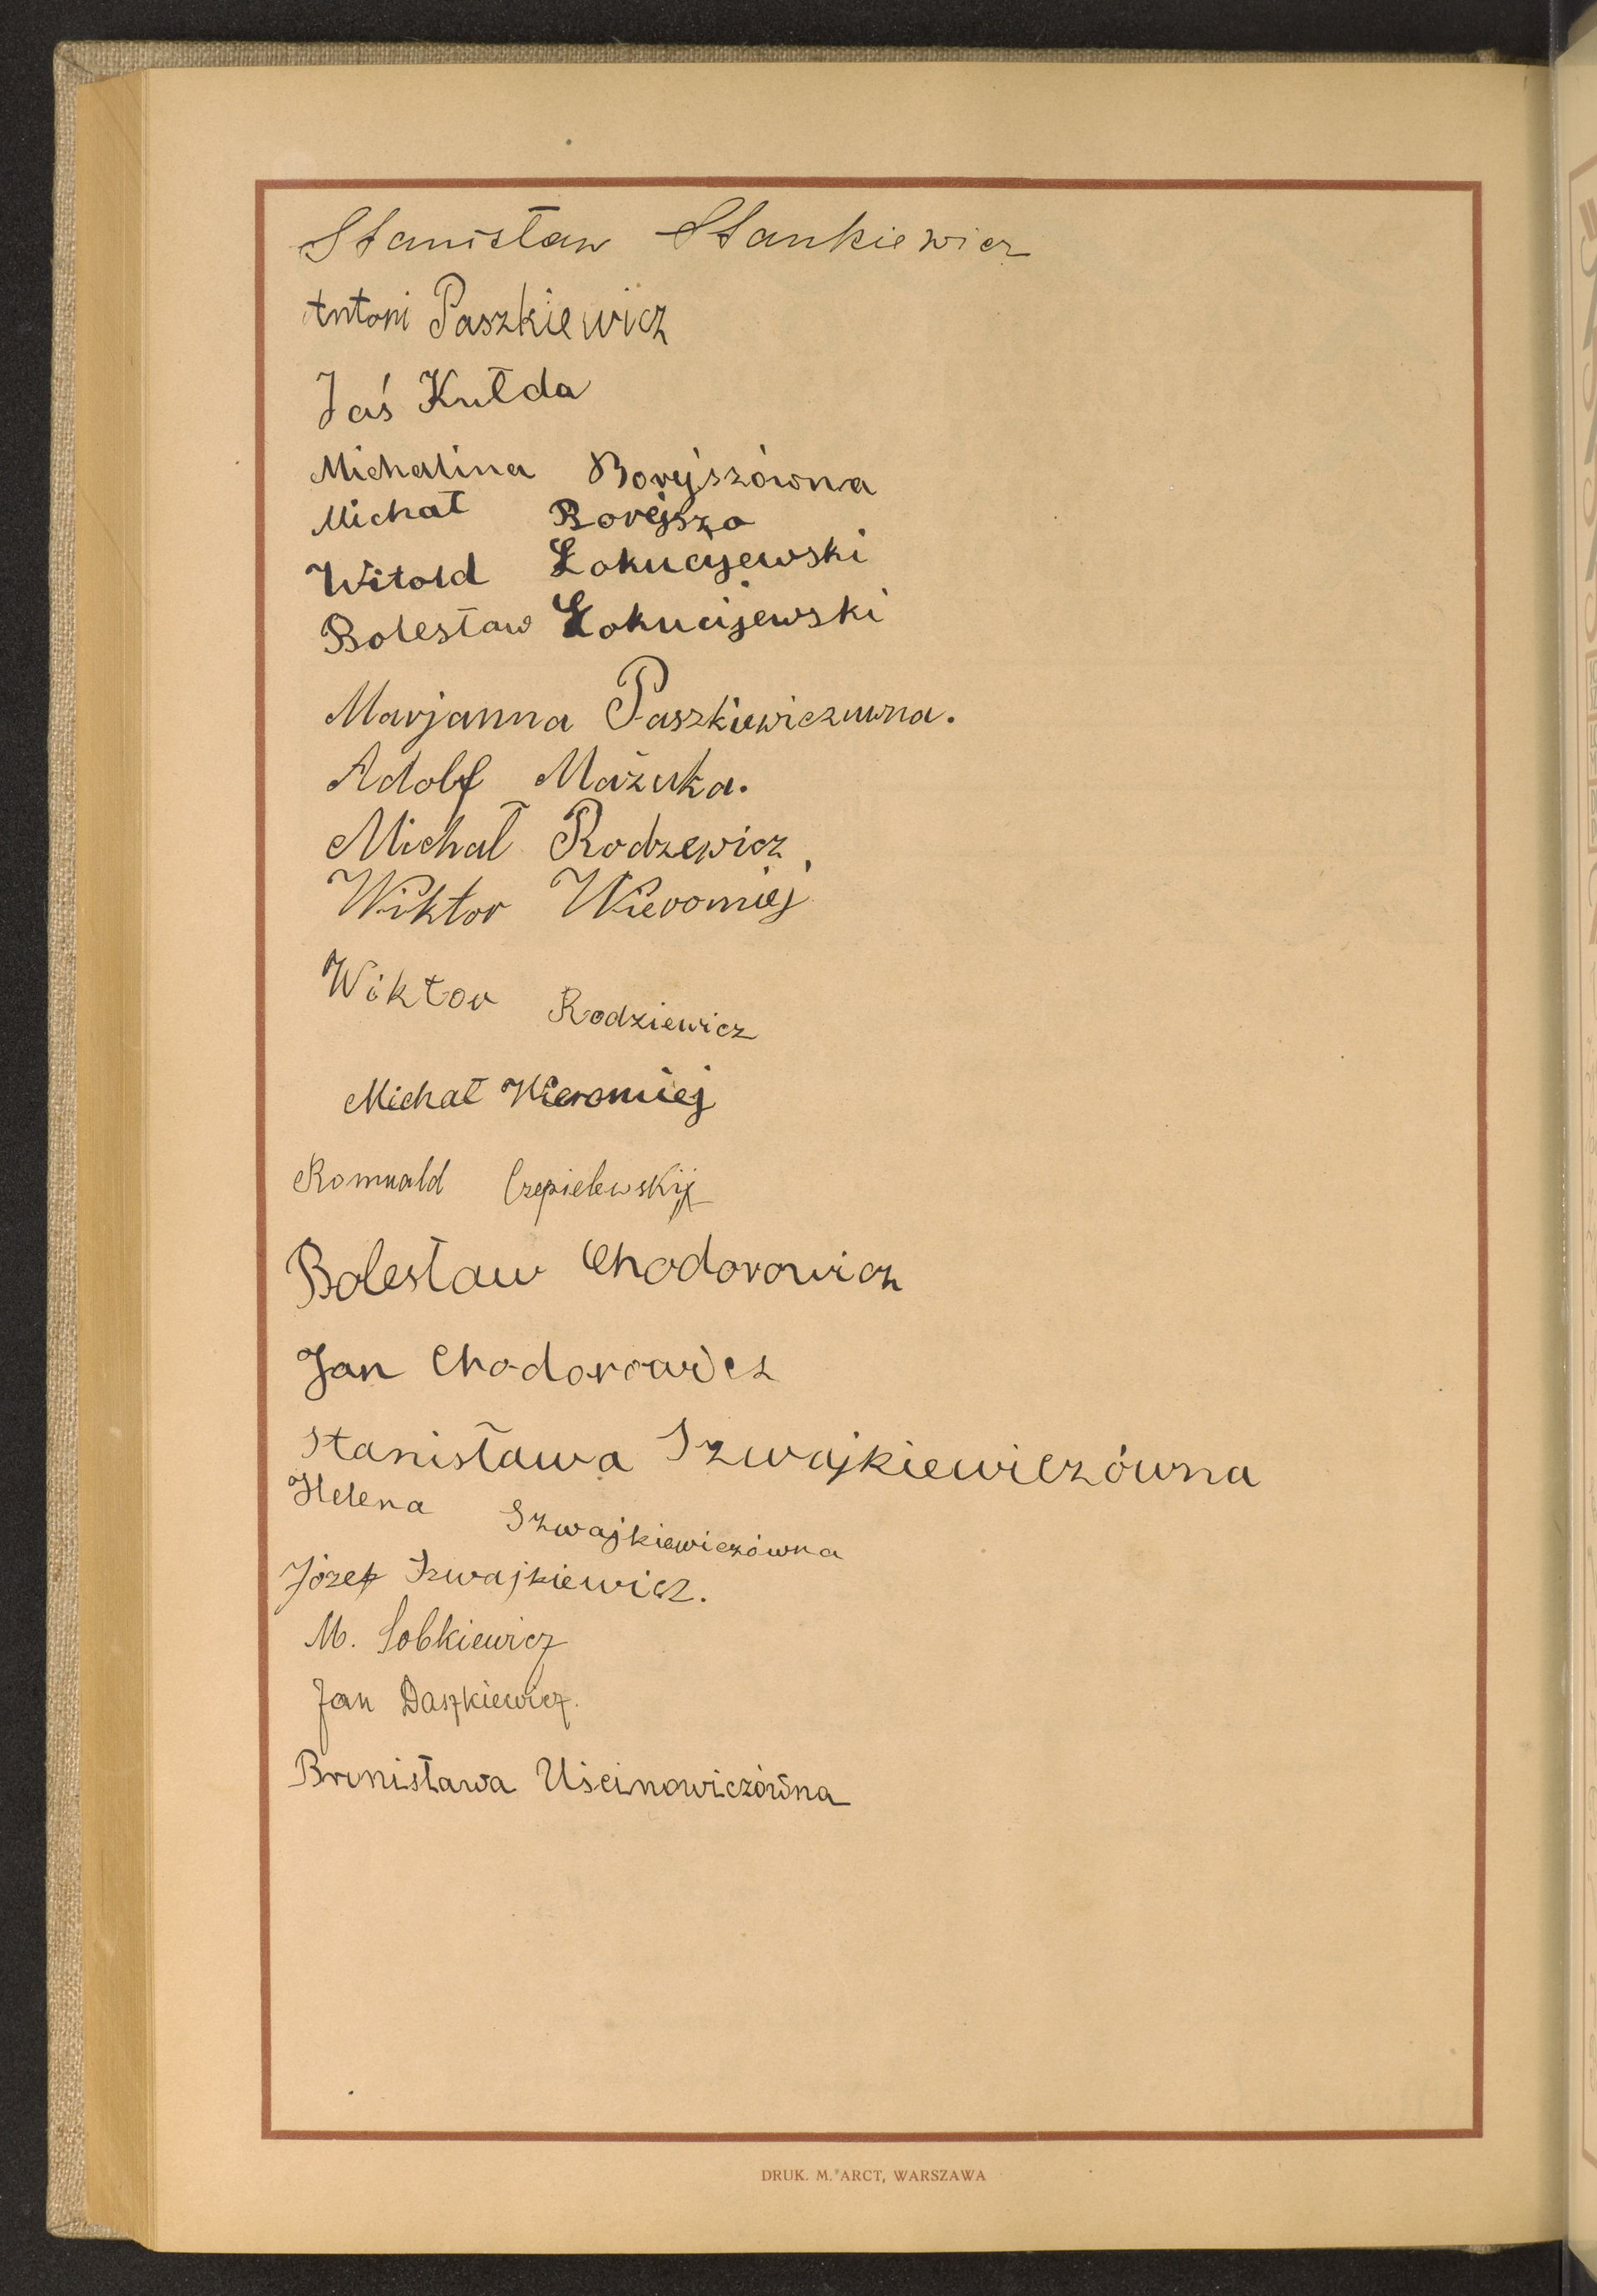 Stanisław Stankiewicz
Antoni Paszkiewicz
Jaś Kułda
Michalina Borejszówna
Michał Borejszo
Witold Łokucijewski
Bolesław Łokucijewski
Marjanna Paszkiewiczuwna.
Adolf Mażuka.
Michał Rodzewicz
Wiktor Wieromiej
Wiktor Rodziewicz
Michał Wieromiej
Romuald Czepielewskij
Bolesław Chodorowicz
Jan Chodorowicz
Stanisława Szwajkiewiczówna
Helena Szwajkiewiczówna
Józef Szwajkiewicz.
M. Sobkiewicz
Jan Daszkiewicz.
Bronisława Uścinowiczówna
DRUK. M. ARCT, WARSZAWA